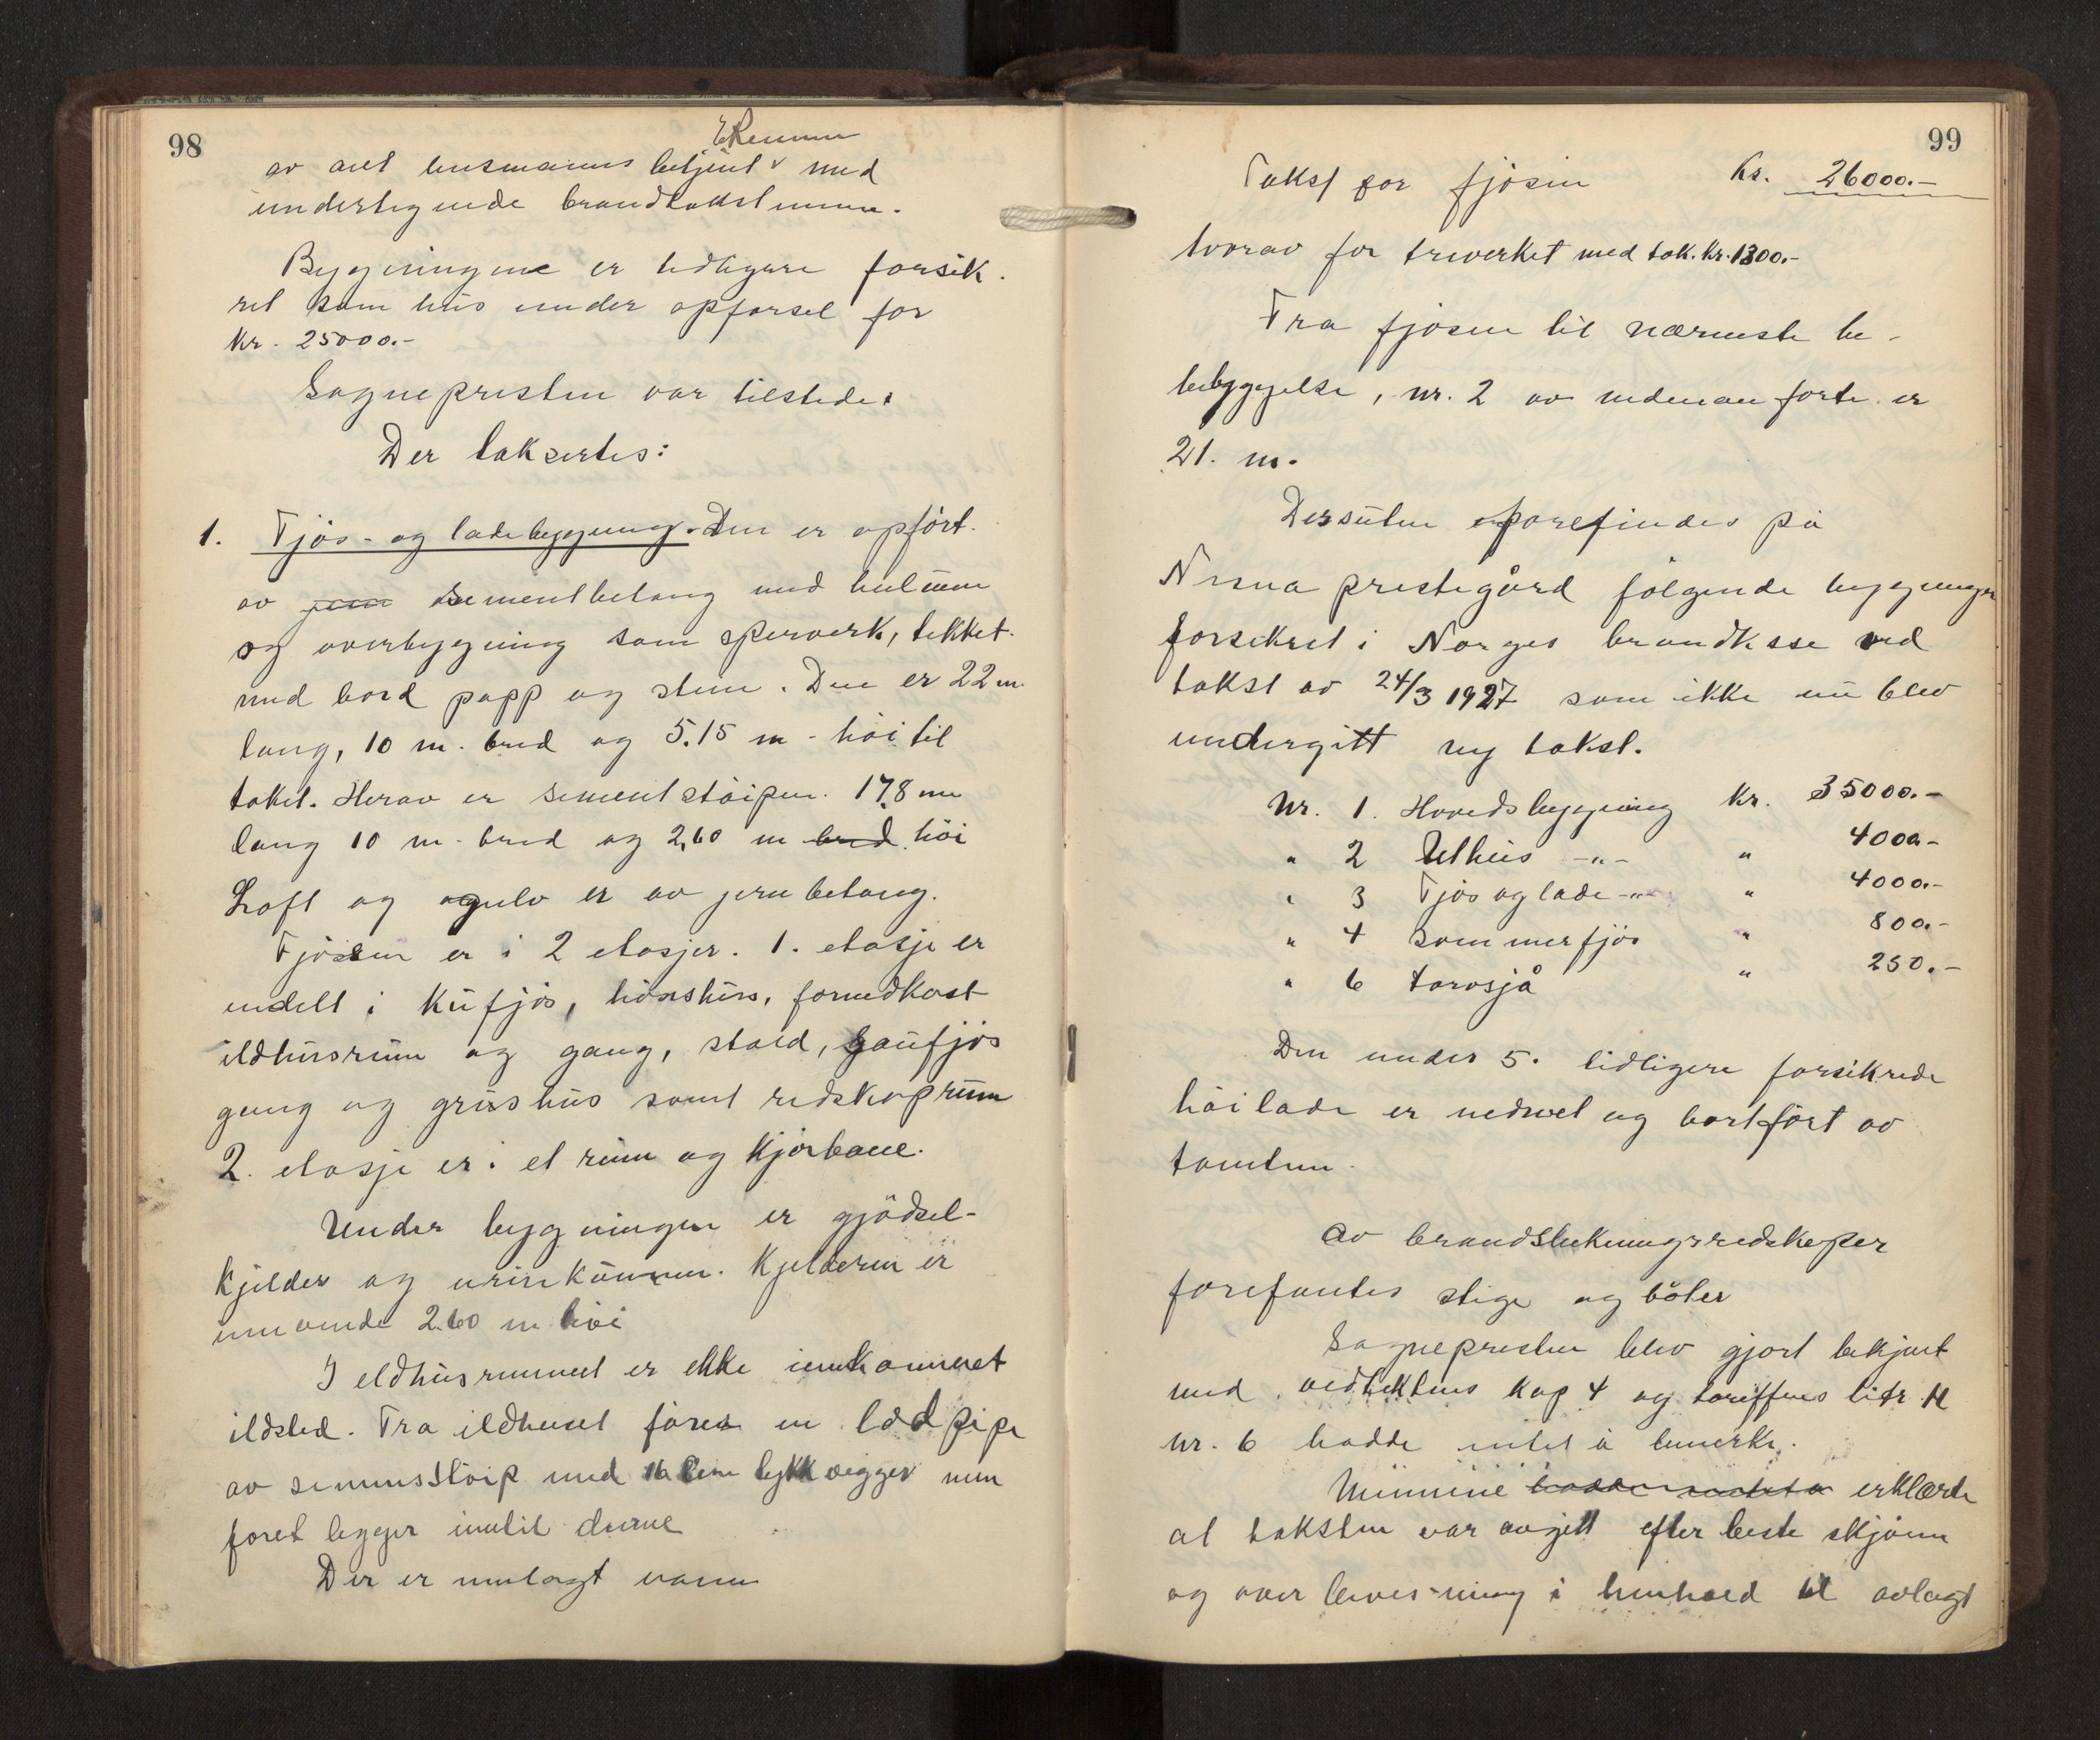 98
ERemmen
av aut lensmanns betjent v med
undertegnede brandtakstmenn.
Bygningene er tidligere forsik.
ret som hus under opførsel for
Kr. 25000.-
Sognepresten var tilstede.
Der taksertes:
1. Fjøs- og ladebygning. Den er opført
av jern sementbetong med hulrum
og overbygning som sperverk, tekket
med bord papp og sten. Den er 22 m.
lang, 10 m. bred og 5.15 m. høi til
taket. Herav er sementstøipen 17,8 m
lang 10 m. bred og 2,60 m bred høi
Loft og gulv er av jernbetong.
Fjøsen er i 2 etasjer. 1. etasje er
indelt i kufjøs, hønshus, fornedkast
ildhusrum og gang, stald, saufjøs
gang og grishus samt redskaprum
2. etasje er i et rum og kjørbane.
Under bygningen er gjødsel-
kjelder og urinkummen. Kjelderen er
innvendi 2.60 m høi
I eldhusrummet er ikke innkommet
ildsted. Fra ildhuset fører en lodpipe
av semensstøip med 16 cm tykk vegger uten
foret legger inntil denne
Der er innlagt vann
99
Takst for fjøsen Kr. 26000.-
hvorav for treverket med tak. Kr. 1300.-
Fra fjøsen til nærmeste be-
bebyggelse, nr. 2 av nedenanførte er
21. m.
Desuten forefindes på
Nesna prestegård følgende bygninger
forsikret i Norges brandkasse ved
takst av 24/3 1927 som ikke nu blev
undergitt ny takst.
Nr. 1. Hovedsbygning Kr. 35000.-
" 2 Uthus -"- " 4000.-
" 3 Fjøs og lade -"- " 4000.-
" 4 Sommerfjøs " 800.-
" 6 torvsjå " 250.-
Den under 5. tidligere forsikrede
høilade er nedrevet og bortført av
tomten.
Av brandslukningsredskaper
forefantes stige og bøtter
Sognepresten blev gjort bekjent
med vedtektens kap 4 og tariffens litr H
nr. 6 hadde intet å bemerke.
Mennene hadde erklærte
at taksten var avgitt efter beste skjønn
og overbevisning i henhold til avlagt